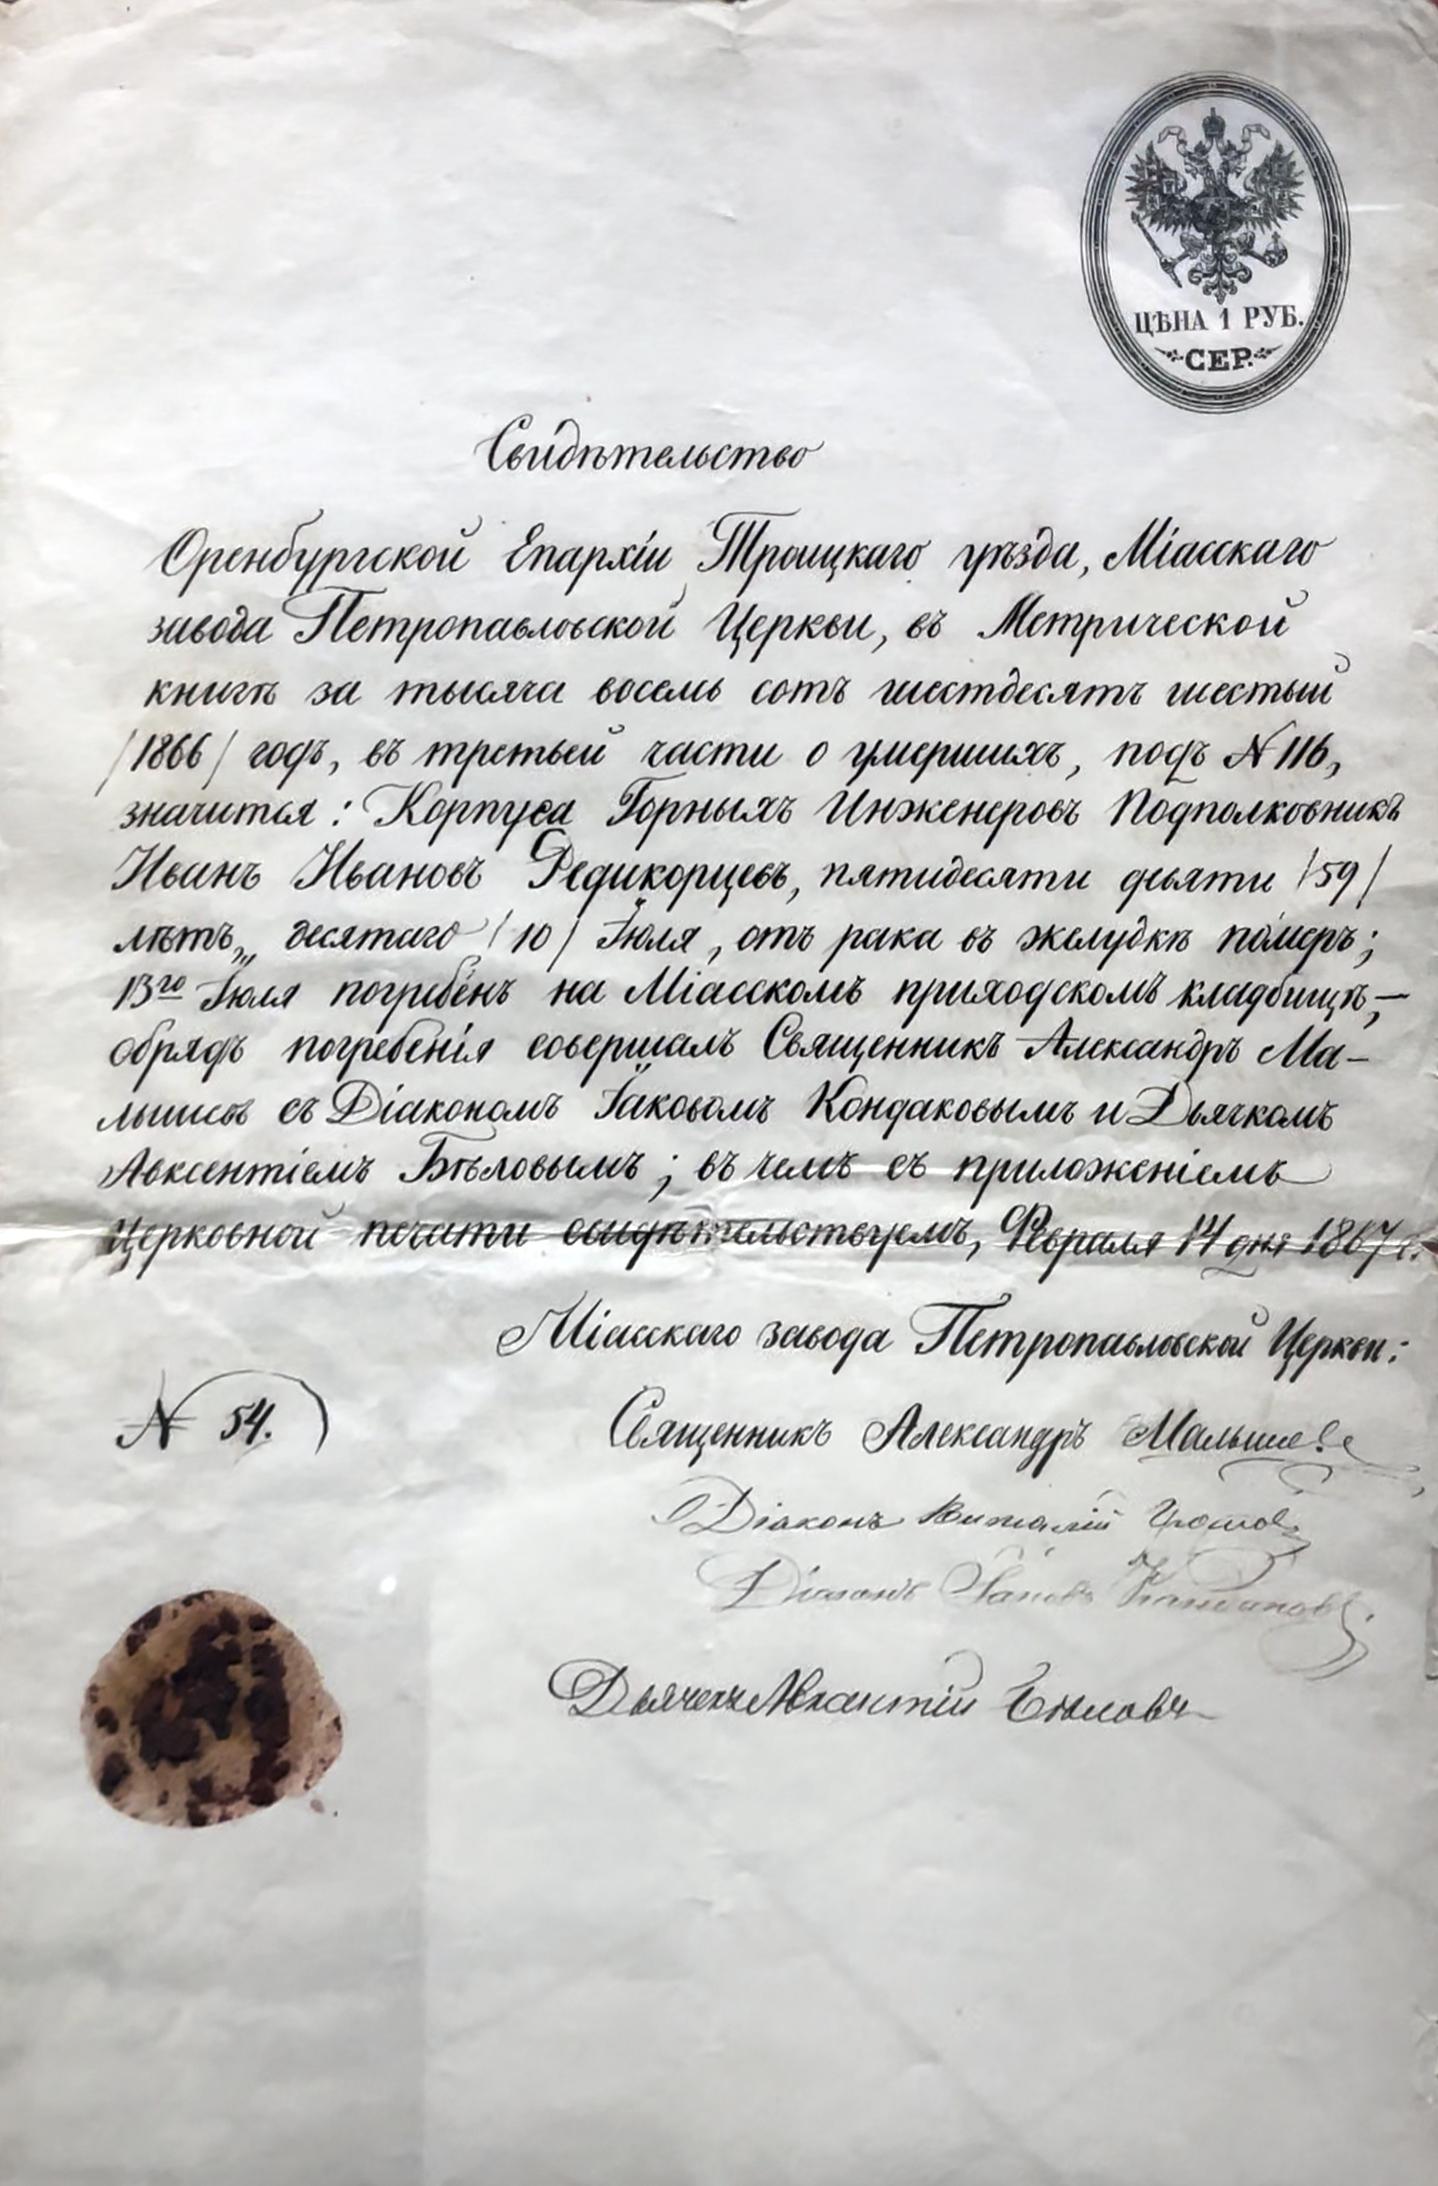 ЦѢНА 1 РУБ.
СЕР.
Свидѣтельство
Оренбургской Епархіи Троицкаго уѣзда, Міасскаго
завода Петропавловской Церкви, въ Метрической
книгѣ за тысяча восемь сотъ шестдесятъ шестый
/1866/ годъ, въ третьей части о умершихъ, подъ № 116,
значится: Корпуса Горныхъ Инженеровъ Подполковникъ
Иванъ Ивановъ Редикорцевъ, пятидесяти девяти /59/
лѣтъ,, десятаго /10/ Іюля, отъ рака въ желудкѣ померъ;
13го Іюля погребенъ на Міасскомъ приходскомъ кладбищѣ,—
обрядъ погребенія совершалъ Священникъ Александръ Ма-
лышевъ съ Діакономъ Іаковомъ Кондаковымъ и Дьячкомъ
Авксентіемъ Бѣловымъ; въ чемъ съ приложеніемъ
Церковной печати свидѣтельствуемъ, Февраля 14 дня 1867 г.
Міасскаго завода Петропавловской Церкви:
№ 54.
Священникъ Александръ Малышевъ
Діаконъ Виталій
Діаконъ Іаковъ Кондаковъ
Дьячекъ Авксентій Бѣловъ